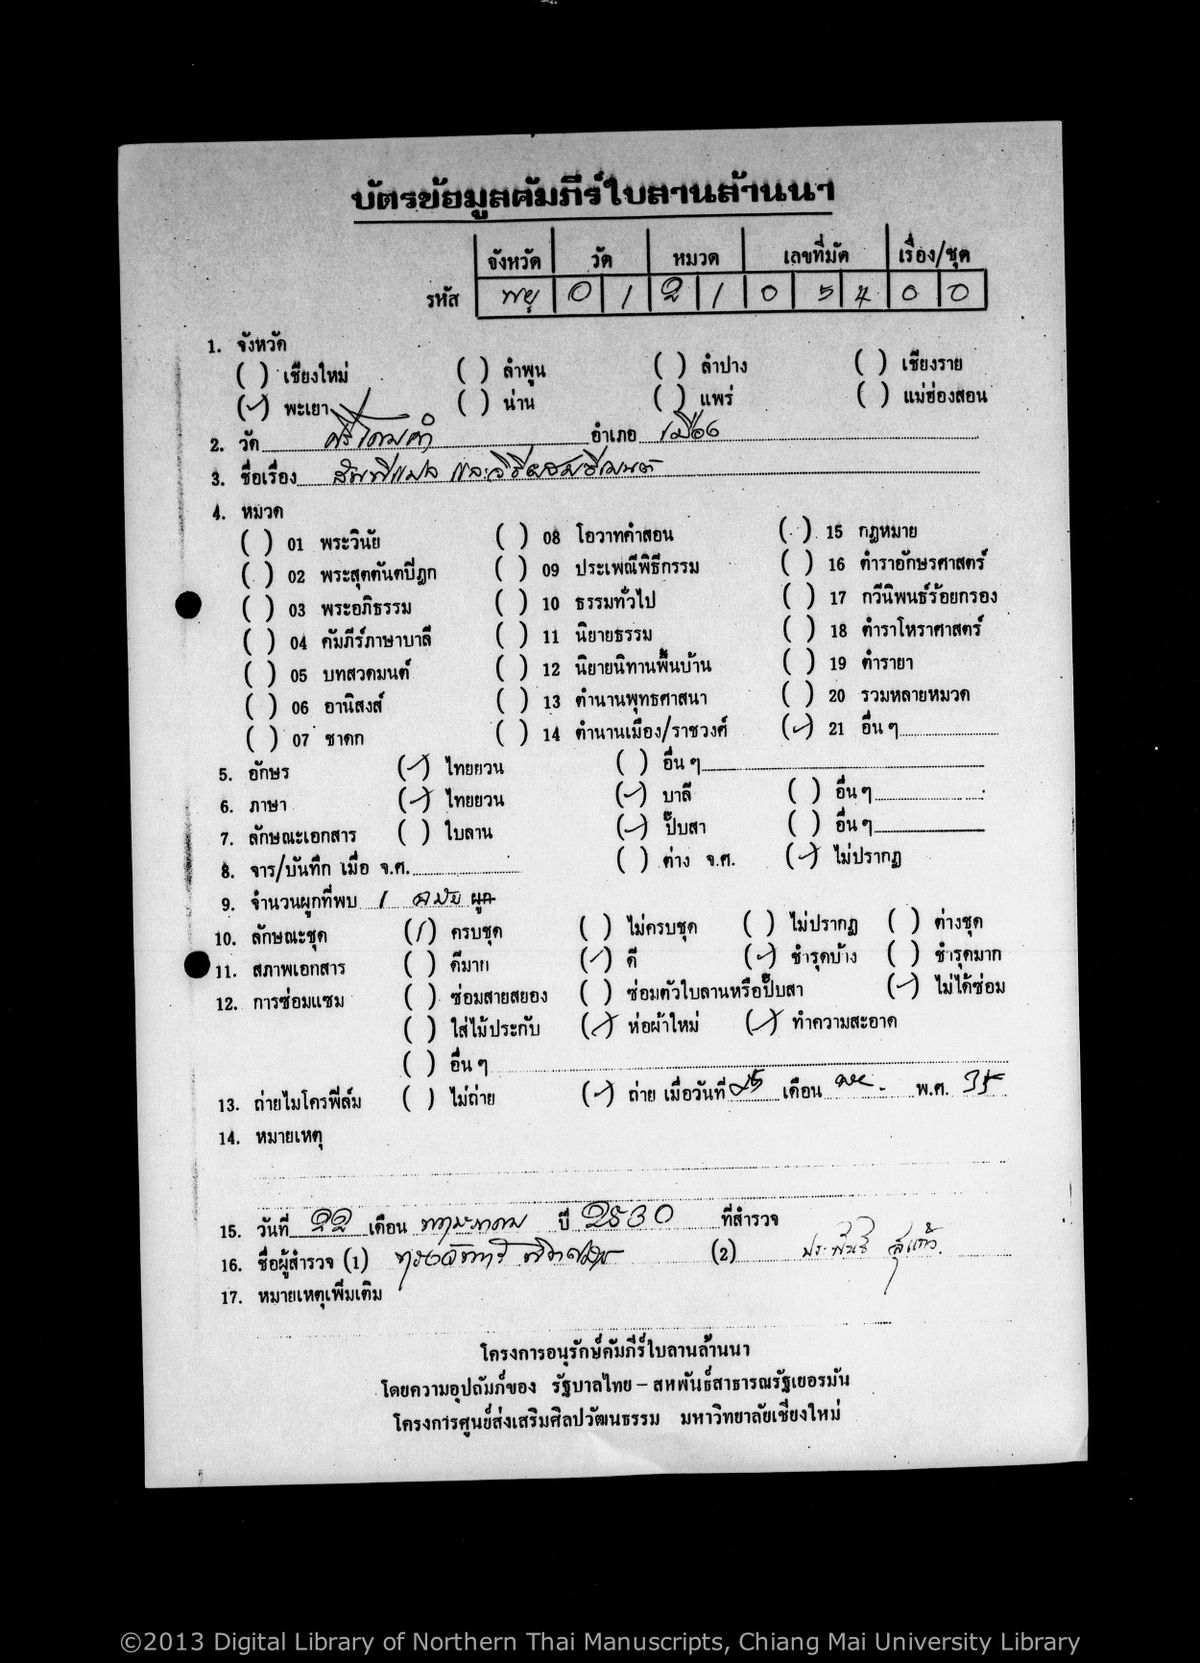 บัตรข้อมูลคัมภีร์ใบลานล้านนา
จังหวัด วัด หมวด เลขที่มัด เรื่อง/ชุด
รหัส พย 0 1 2 1 0 5 4 0 0
1. จังหวัด
( ) เชียงใหม่ ( ) ลำพูน ( ) ลำปาง ( ) เชียงราย
(✓) พะเยา ( ) น่าน ( ) แพร่ ( ) แม่ฮ่องสอน
2. วัด ศรีโคมคำ อำเภอ เมือง
3. ชื่อเรื่อง
4. หมวด
( ) 01 พระวินัย ( ) 08 โอวาทคำสอน ( ) 15 กฎหมาย
( ) 02 พระสุตตันตปิฎก ( ) 09 ประเพณีพิธีกรรม ( ) 16 ตำราอักษรศาสตร์
( ) 03 พระอภิธรรม ( ) 10 ธรรมทั่วไป ( ) 17 กวีนิพนธ์ร้อยกรอง
( ) 04 คัมภีร์ภาษาบาลี ( ) 11 นิยายธรรม ( ) 18 ตำราโหราศาสตร์
( ) 05 บทสวดมนต์ ( ) 12 นิยายนิทานพื้นบ้าน ( ) 19 ตำรายา
( ) 06 อานิสงส์ ( ) 13 ตำนานพุทธศาสนา ( ) 20 รวมหลายหมวด
( ) 07 ชาดก ( ) 14 ตำนานเมือง/ราชวงศ์ (✓) 21 อื่น ๆ
5. อักษร (✓) ไทยยวน ( ) อื่น ๆ
6. ภาษา (✓) ไทยยวน (✓) บาลี ( ) อื่น ๆ
7. ลักษณะเอกสาร ( ) ใบลาน (✓) ปั๊บสา ( ) อื่น ๆ
8. จาร/บันทึก เมื่อ จ.ศ. ( ) ต่าง จ.ศ. (✓) ไม่ปรากฏ
9. จำนวนผูกที่พบ 1 ฉบับ ผูก
10. ลักษณะชุด (/) ครบชุด ( ) ไม่ครบชุด ( ) ไม่ปรากฏ ( ) ต่างชุด
11. สภาพเอกสาร ( ) ดีมาก (✓) ดี (✓) ชำรุดบ้าง ( ) ชำรุดมาก
12. การซ่อมแซม ( ) ซ่อมสายสยอง ( ) ซ่อมตัวใบลานหรือปั๊บสา (✓) ไม่ได้ซ่อม
( ) ใส่ไม้ประกับ (✓) ห่อผ้าใหม่ (✓) ทำความสะอาด
( ) อื่น ๆ
13. ถ่ายไมโครฟิล์ม ( ) ไม่ถ่าย (✓) ถ่าย เมื่อวันที่ เดือน พ.ศ. 35
14. หมายเหตุ
15. วันที่ 22 เดือน พฤษภาคม ปี 2530 ที่สำรวจ
16. ชื่อผู้สำรวจ (1) (2) ประพันธ์ สุแก้ว
17. หมายเหตุเพิ่มเติม
โครงการอนุรักษ์คัมภีร์ใบลานล้านนา
โดยความอุปถัมภ์ของ รัฐบาลไทย – สหพันธ์สาธารณรัฐเยอรมัน
โครงการศูนย์ส่งเสริมศิลปวัฒนธรรม มหาวิทยาลัยเชียงใหม่
©2013 Digital Library of Northern Thai Manuscripts, Chiang Mai University Library